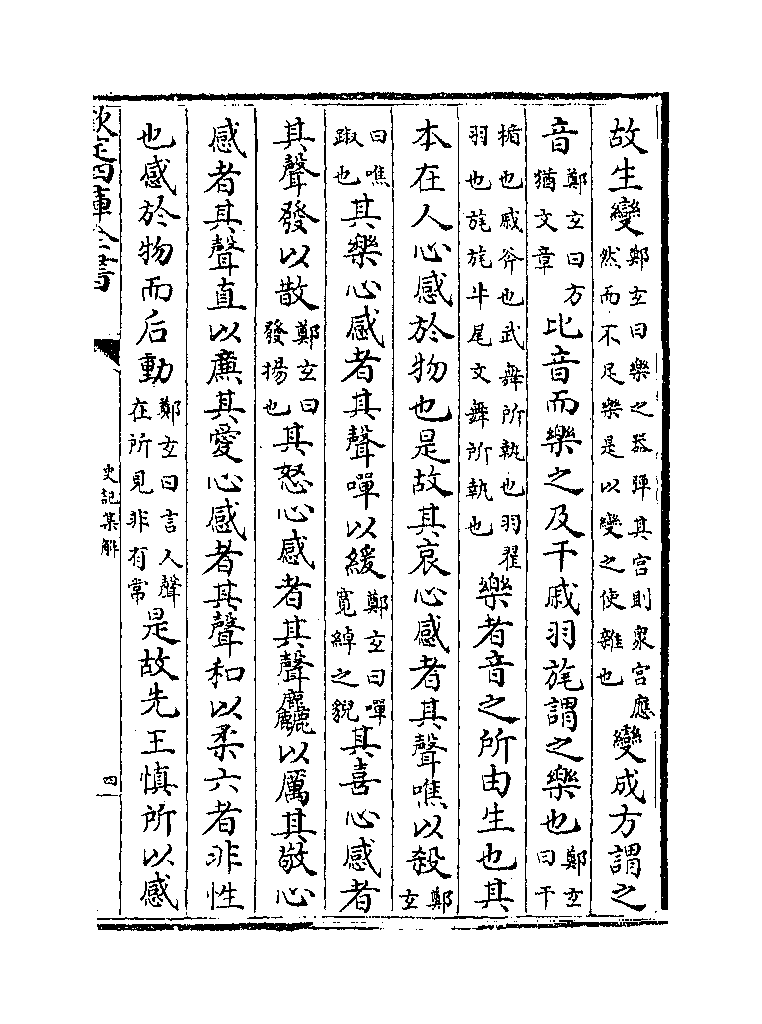 故生變鄭玄曰樂之器彈其宮則衆宮應然而不足樂是以變之使雜也變成方謂之
音鄭玄曰方猶文章比音而樂之及干戚羽旄謂之樂也鄭玄曰干
楯也戚斧也武舞所執也羽翟羽也旄旄牛尾文舞所執也樂者音之所由生也其
本在人心感於物也是故其哀心感者其聲噍以殺鄭玄
曰噍踧也其樂心感者其聲嘽以緩鄭玄曰嘽寛綽之貌其喜心感者
其聲發以散鄭玄曰發揚也其怒心感者其聲麤以厲其敬心
感者其聲直以廉其愛心感者其聲和以柔六者非性
也感於物而后動鄭玄曰言人聲在所見非有常是故先王慎所以感
欽定四庫全書
史記集解
四